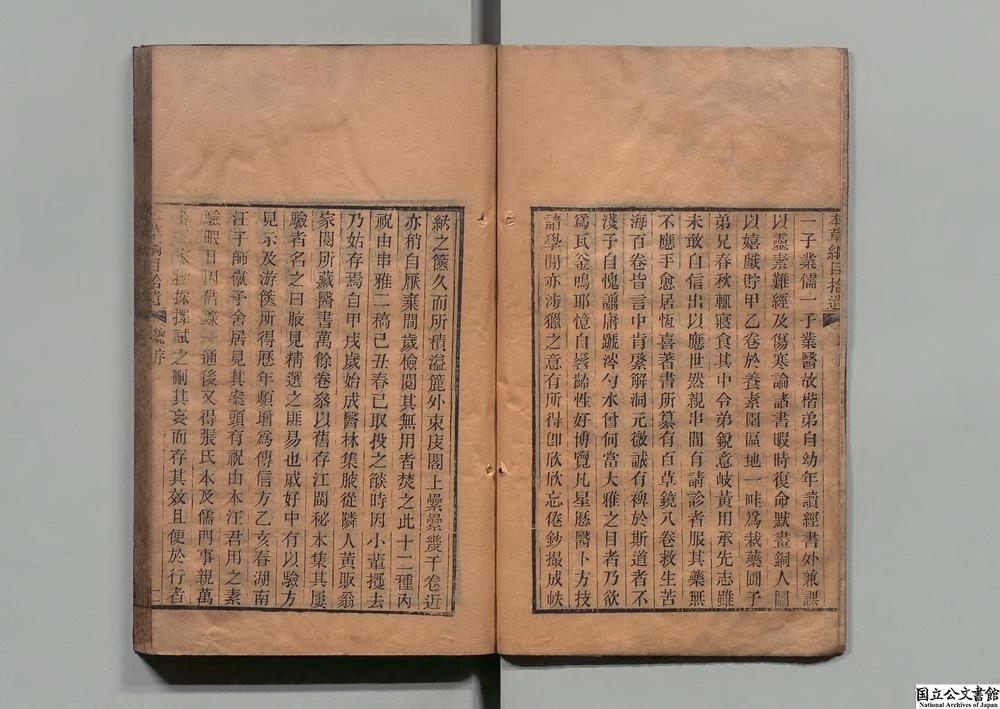 本草綱目拾遺
一子業儒一子業醫故楷弟自幼年讀經書外兼課
以靈素難經及傷寒論諸書暇時復命默畫銅人圖
以嬉戲貯甲乙卷於養素園區地一畦為栽藥圃予
弟兄春秋輒寢食其中令弟銳意岐黃用承先志雖
未敢自信出以應世然親串間有請診者服其藥無
不應手愈居恆喜著書所纂有百草鏡八卷救生苦
海百卷皆言中肯綮解洞元微誠有裨於斯道者不
淺予自愧譾庸蹏涔勺水曾何當大雅之目者乃欲
為瓦釜鳴耶憶自髫齠性好博覽凡星歷醫卜方技
諸學閒亦涉獵之意有所得卽欣欣忘倦鈔撮成帙
納之篋久而所積溢簏外束庋閣上纍纍幾千卷近
亦稍自厭棄間歲儉閱其無用者焚之此十二種丙
祝由串雅二稿己丑春已取投之燄時因小輩攫去
乃姑存焉自甲戌歲始成醫林集腋從隣人黃販翁
家閱所藏醫書萬餘卷叅以舊存江閩秘本集其屢
驗者名之曰腋見精選之匪易也戚好中有以驗方
見示及游篋所得歷年頻增為傳信方乙亥春湖南
汪子師僦予舍居見其案頭有祝由本汪君用之素
驗暇日因借錄一通後又得張氏本及儒門事親萬
採擇試之刪其妄而存其效且便於行者
本草綱目拾遺
總序
二
国立公文書館
National Archives of Japan